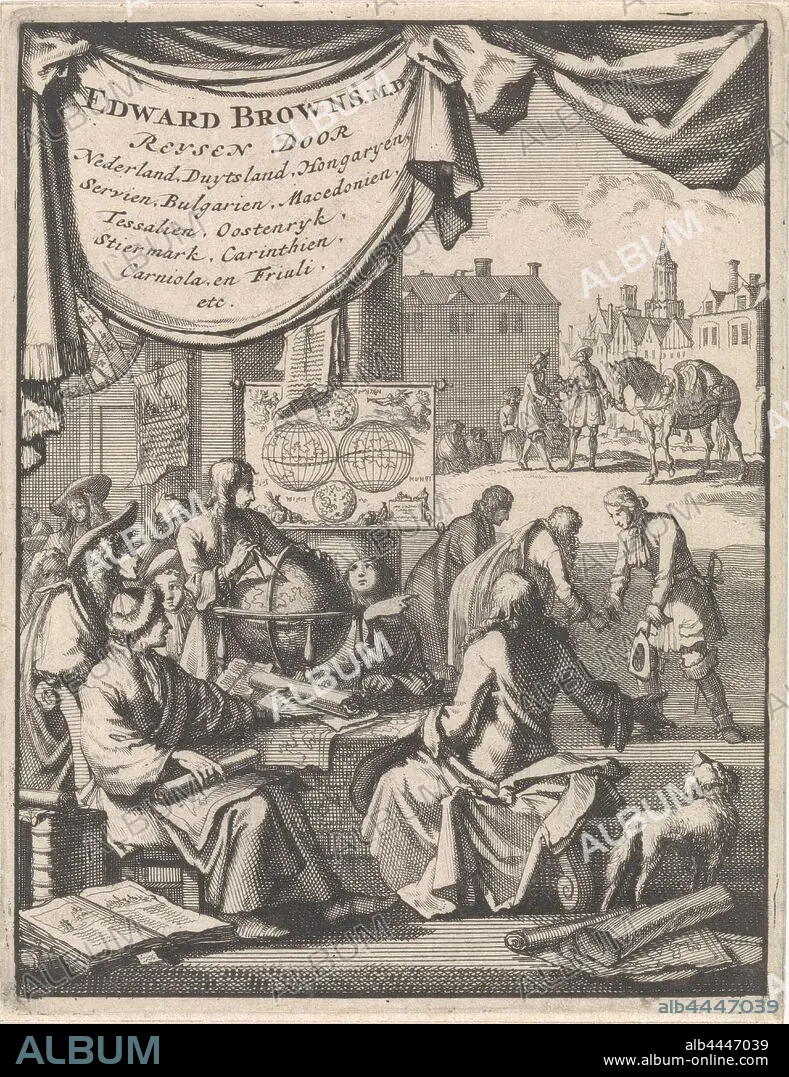 EDWARD BROWNS. M.D.
REYSEN DOOR
Nederland, Duytsland, Hongaryen,
Servien, Bulgarien, Macedonien,
Tessalien, Oostenryk,
Stiermark, Carinthien,
Carniola, en Friuli,
etc.
MUNDI
ALBUM
alb4447039
ALBUM
alb4447039
www.album-online.com